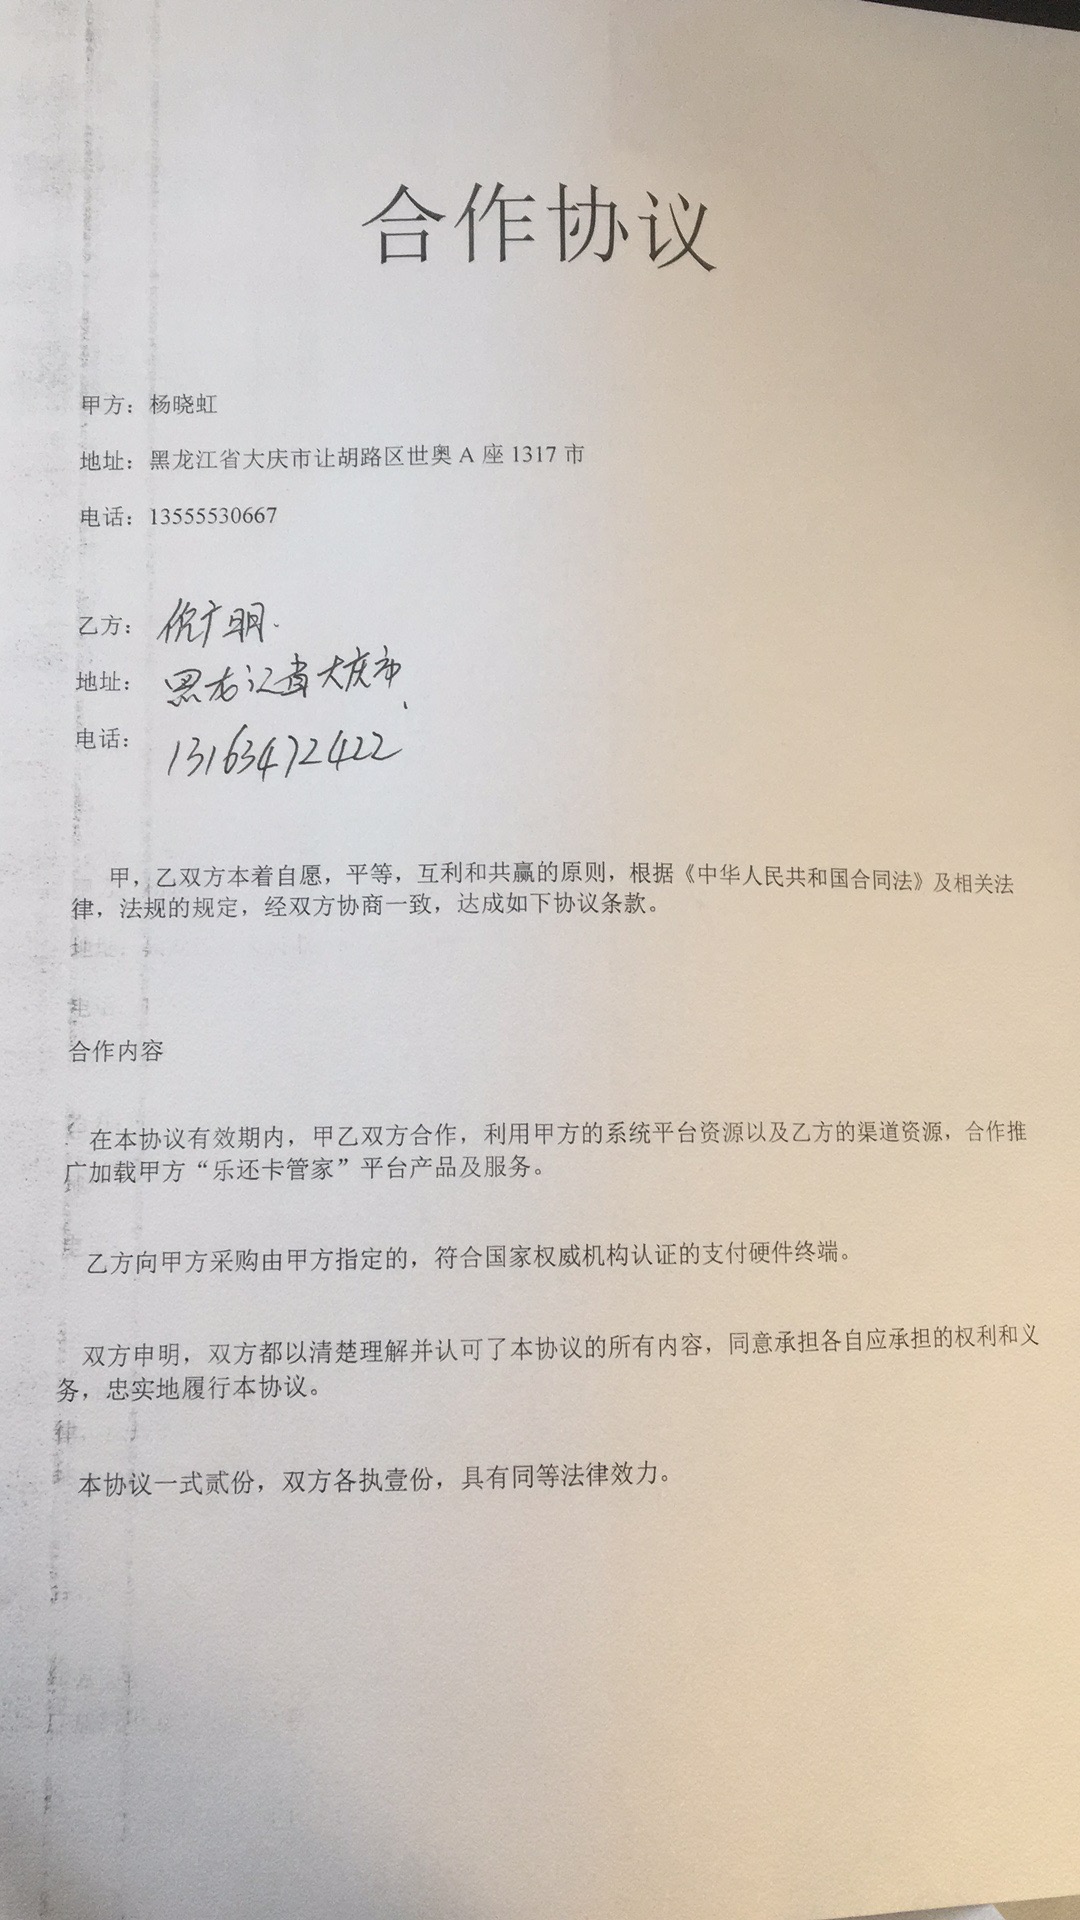 合作协议
甲方：杨晓虹
地址：黑龙江省大庆市让胡路区世奥 A 座 1317 市
电话：13555530667
乙方：倪广明.
地址：黑龙江省大庆市
电话：13163472422
甲，乙双方本着自愿，平等，互利和共赢的原则，根据《中华人民共和国合同法》及相关法
律，法规的规定，经双方协商一致，达成如下协议条款。
合作内容
在本协议有效期内，甲乙双方合作，利用甲方的系统平台资源以及乙方的渠道资源，合作推
广加载甲方“乐还卡管家”平台产品及服务。
乙方向甲方采购由甲方指定的，符合国家权威机构认证的支付硬件终端。
双方申明，双方都以清楚理解并认可了本协议的所有内容，同意承担各自应承担的权利和义
务，忠实地履行本协议。
本协议一式贰份，双方各执壹份，具有同等法律效力。